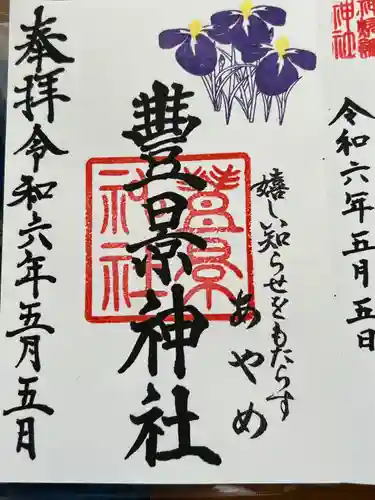 令和六年五月五日
嬉しい知らせをもたらす
あやめ
豊景神社
奉拝 令和六年五月五日